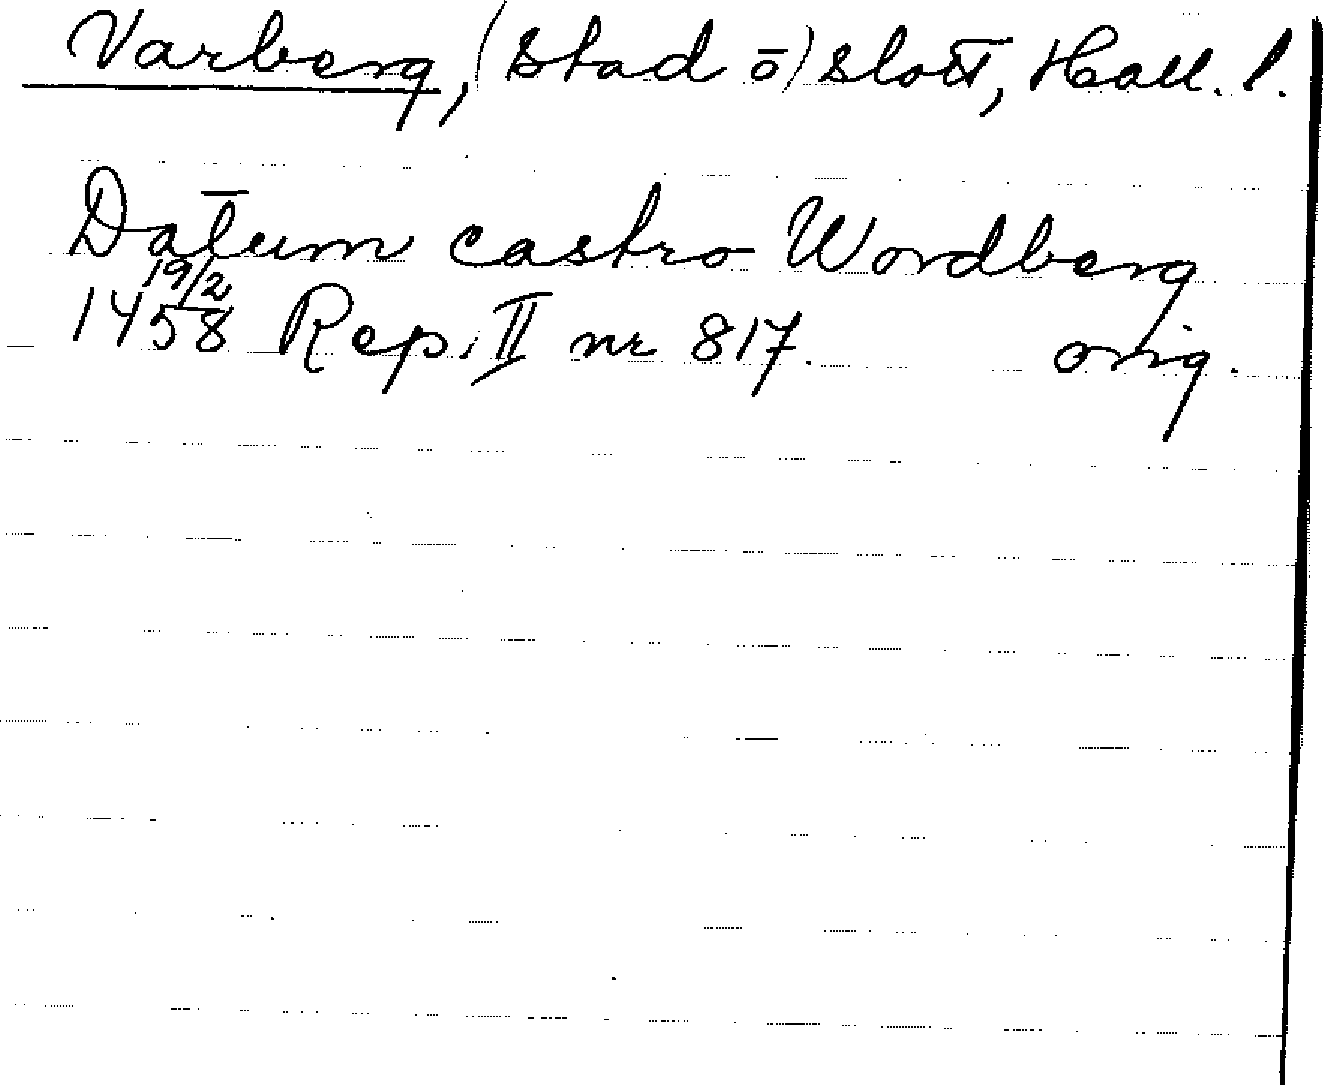 Varberg, (stad o) slott, Hall. l.
Datum castro Wordberg
19/2
1458 Rep. II nr 817. orig.